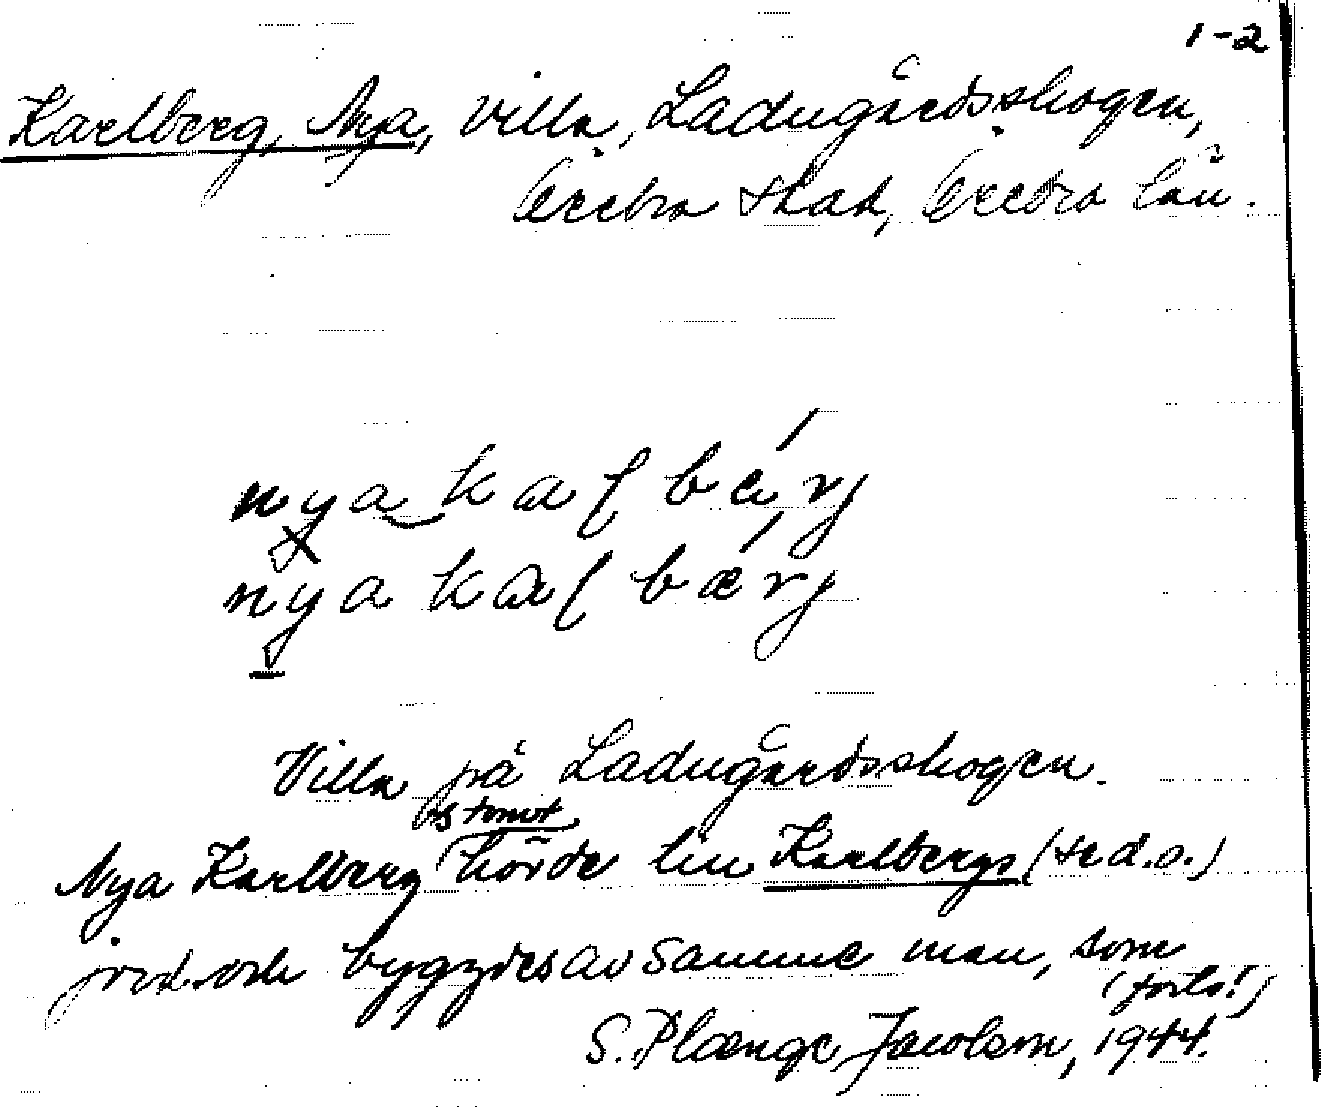 1-2
Karlberg, Nya, villa, Ladugårdsskogen,
Örebro stad, Örebro län.
nya kaɭ bærj
nya kaɭ bærj
Villa på Ladugårdsskogen.
s tomt
Nya Karlberg hörde till Karlbergs (se d.o.)
jord och byggdes av samme man, som
(forts!)
S. Plænge Jacobson, 1944.